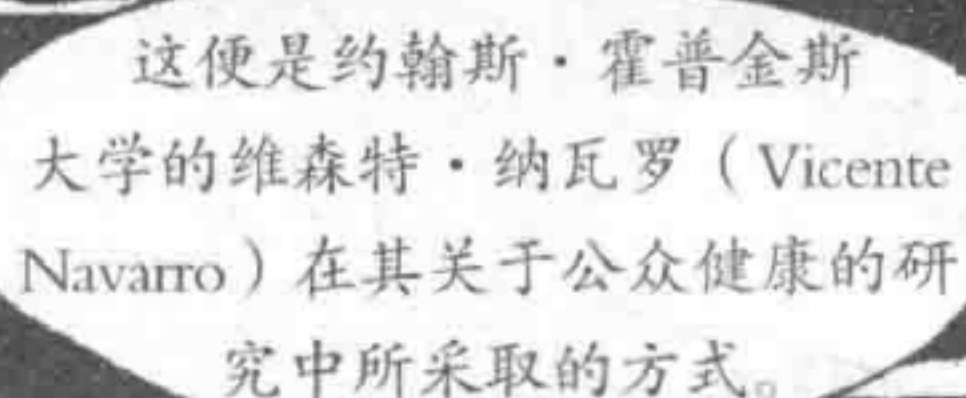 这便是约翰斯·霍普金斯
大学的维森特·纳瓦罗（Vicente
Navarro）在其关于公众健康的研
究中所采取的方式。